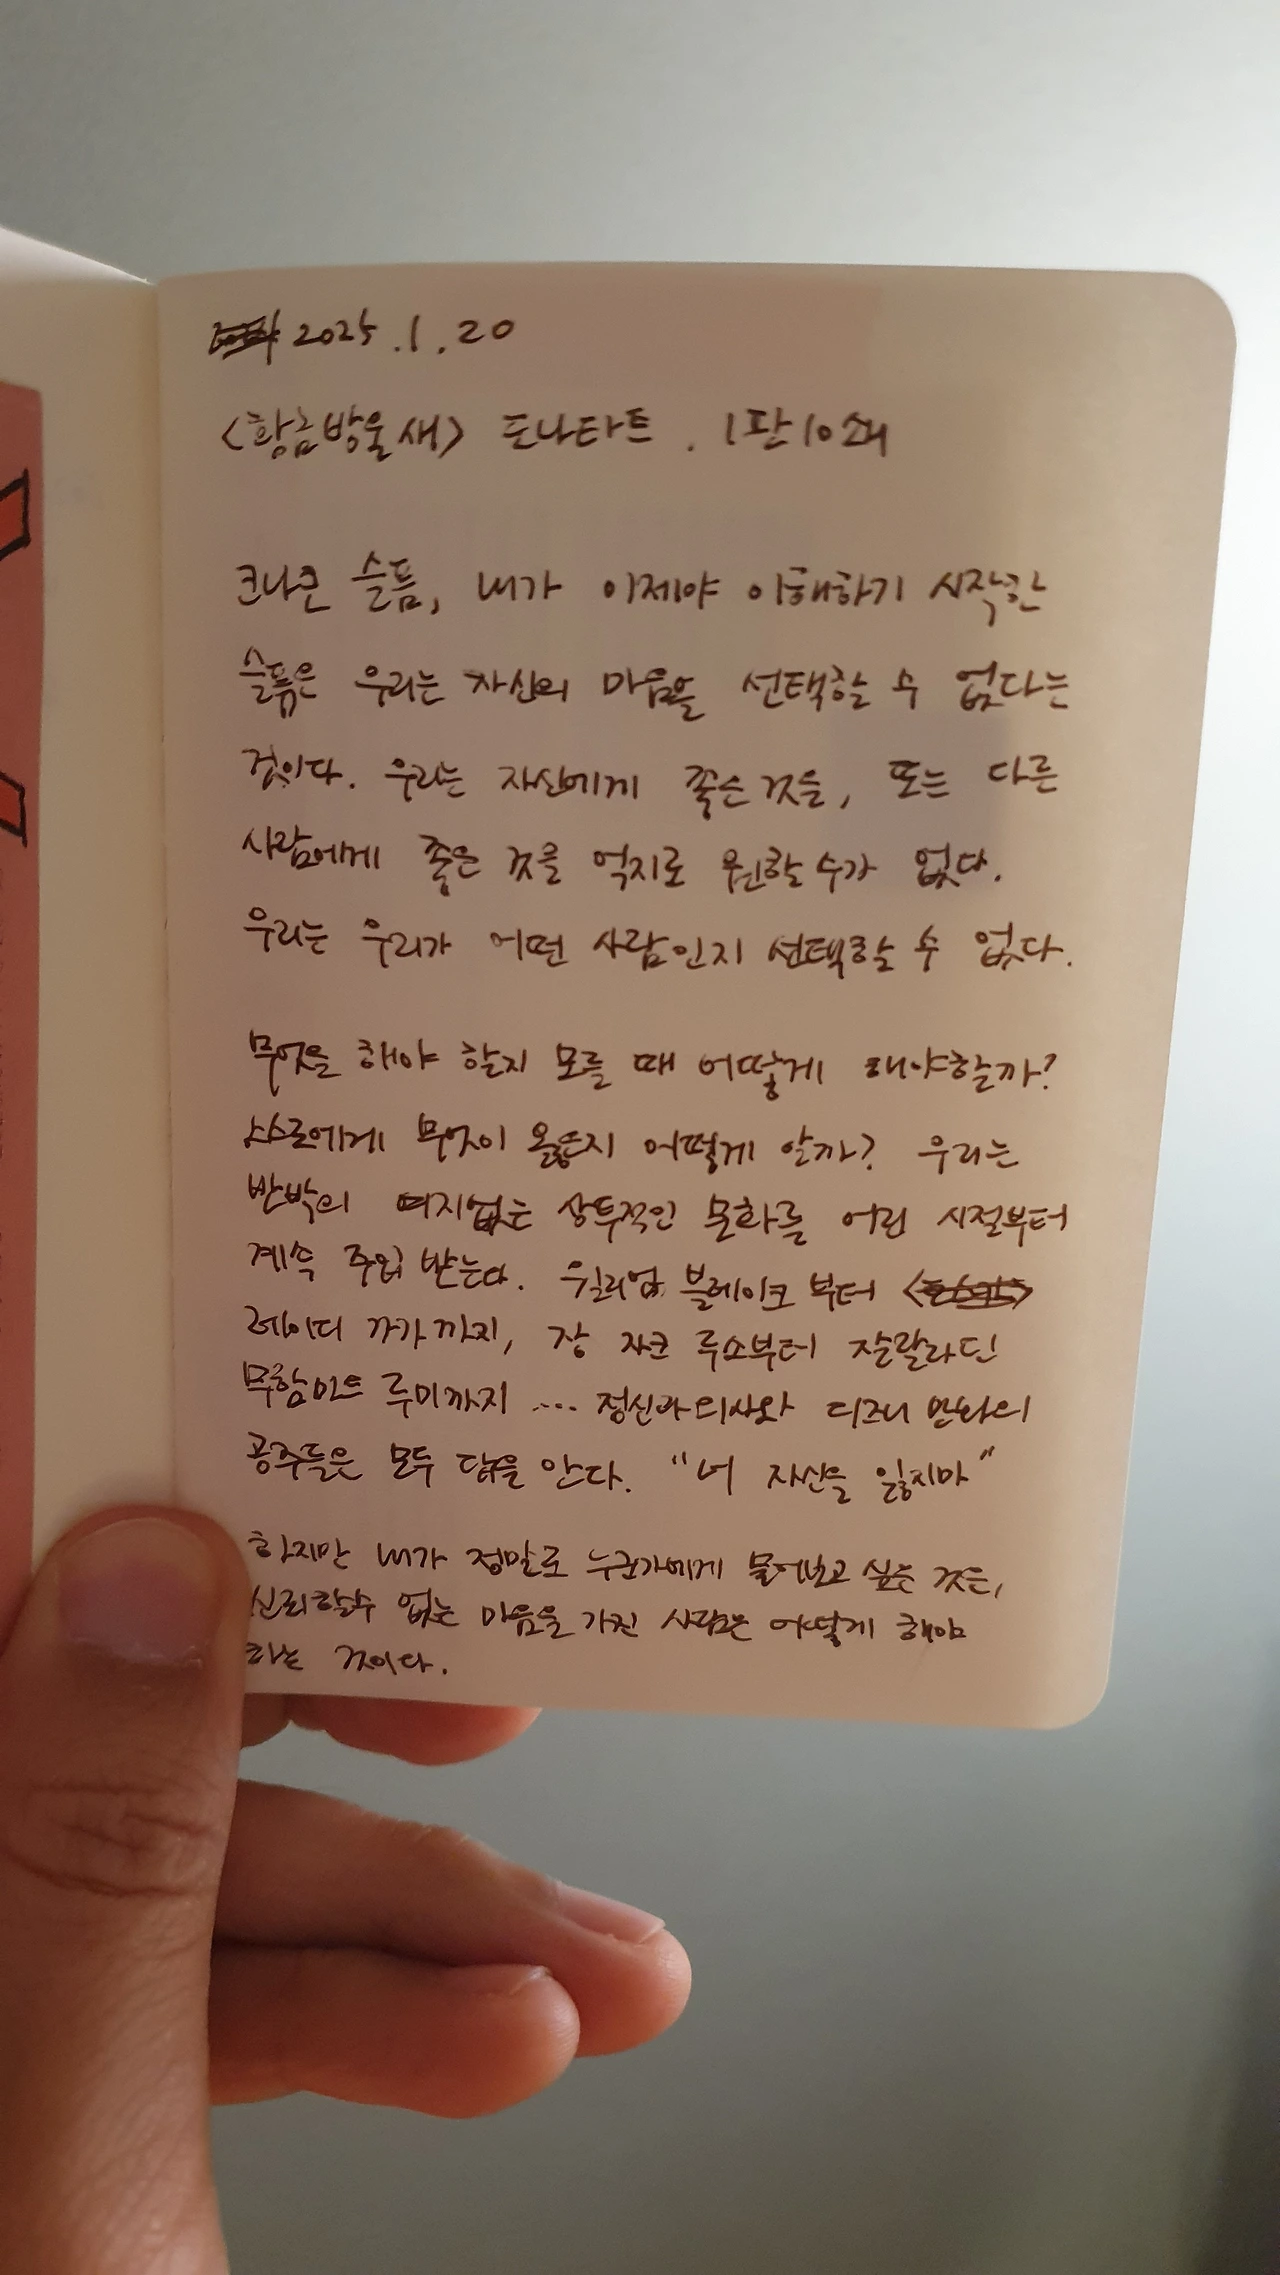 2025.1.20
<황금방울새> 도나타트. 1판10쇄
크나큰 슬픔, 내가 이제야 이해하기 시작한
슬픔은 우리는 자신의 마음을 선택할 수 없다는
것이다. 우리는 자신에게 좋은 것을, 또는 다른
사람에게 좋은 것을 억지로 원할 수가 없다.
우리는 우리가 어떤 사람인지 선택할 수 없다.
무엇을 해야 할지 모를 때 어떻게 해야할까?
스스로에게 무엇이 옳은지 어떻게 알까? 우리는
반박의 여지없는 상투적인 문화를 어린 시절부터
계속 주입 받는다. 윌리엄 블레이크 부터
레이디 가가까지, 장 자크 루소부터 잘랄라딘
무함마드 루미까지 ... 정신과의사와 디즈니 만화의
공주들은 모두 답을 안다. "너 자신을 잃지마"
하지만 내가 정말로 누군가에게 물어보고 싶은 것은,
신뢰할수 없는 마음을 가진 사람은 어떻게 해야
하는 것이다.